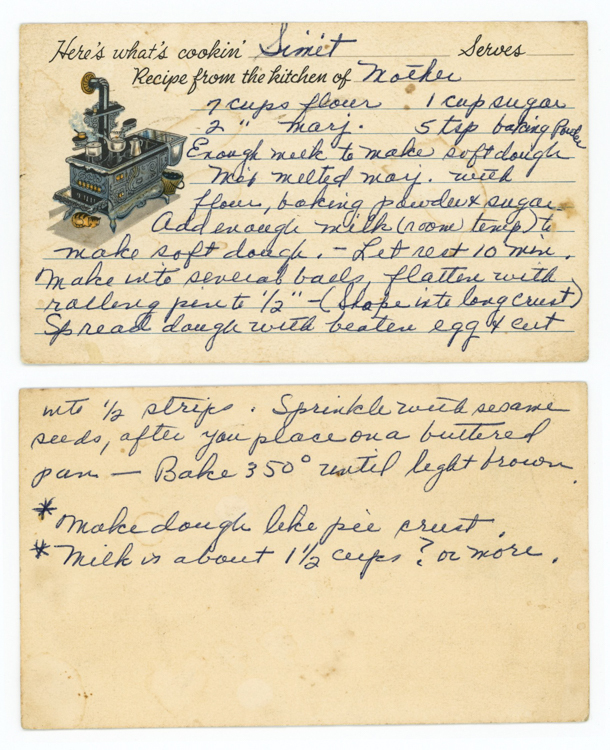 Here's what's cookin' Simit Serves
Recipe from the kitchen of Mother
7 cups flour 1 cup sugar
2 " marj. 5 tsp baking Powder
Enough milk to make soft dough
Mix melted marj. with
flour, baking powder & sugar
Add enough milk (room temp) t
make soft dough. - Let rest 10 min.
Make into several balls, flatten with
rolling pin to 1/2" - (shape into long crust)
Spread dough with beaten egg & cut
into 1/2 strips. Sprinkle with sesame
seeds, after you place on a buttered
pan — Bake 350° until light brown.
* Make dough like pie crust.
* Milk is about 1 1/2 cups? or more.